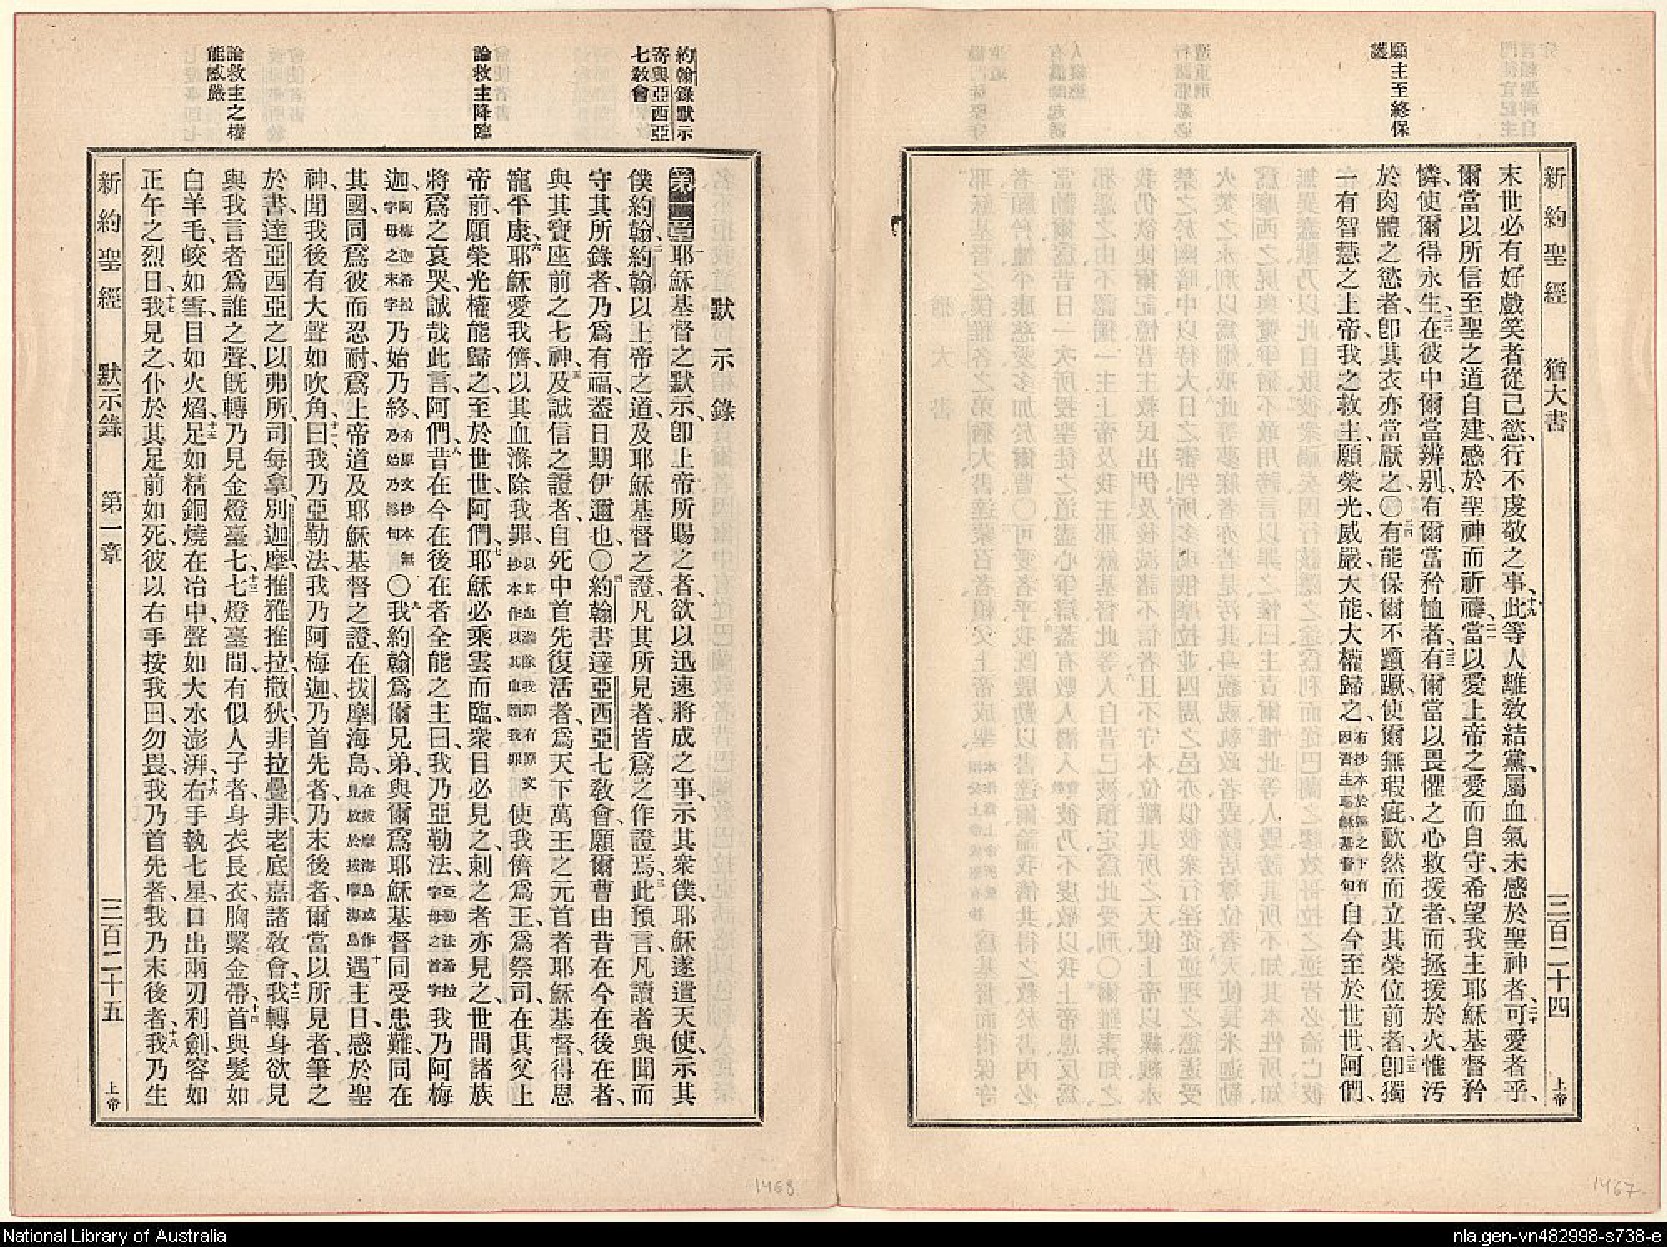 願主至終保
護
新約聖經 猶大書 三百二十四 上帝
末世必有好戲笑者從己慾、行不虔敬之事、十九此等人離教結黨、屬血氣未感於聖神者、二十可愛者乎、
爾當以所信至聖之道自建、感於聖神而祈禱、二一當以愛上帝之愛而自守、希望我主耶穌基督矜
憐、使爾得永生、二二在彼中爾當辨別、有爾當矜恤者、二三有爾當以畏懼之心救援者、而拯援於火、惟污
於肉體之慾者、卽其衣亦當厭之、〇二四有能保爾不躓蹶、使爾無瑕疵、歡然而立其榮位前者、二五卽獨
一有智慧之上帝、我之救主、願榮光威嚴大能大權歸之、有抄本於歸之下有因吾主耶穌基督句自今至於世世、阿們、
約翰錄默示
寄與亞西亞
七教會
論救主降臨
論救主之權
能威嚴
默示錄
第一章 一耶穌基督之默示、卽上帝所賜之者、欲以迅速將成之事、示其衆僕、耶穌遂遣天使、示其
僕約翰、二約翰以上帝之道、及耶穌基督之證、凡其所見者、皆爲之作證焉、三此預言、凡讀者與聞而
守其所錄者、乃爲有福、蓋日期伊邇也、〇四約翰書達亞西亞七教會、願爾曹由昔在今在後在者、
與其寶座前之七神、五及誠信之證者、自死中首先復活者、爲天下萬王之元首者、耶穌基督、得恩
寵平康、六耶穌愛我儕、以其血滌除我罪、以其血滌除我罪有原文抄本作以其血贖我罪使我儕爲王、爲祭司、在其父上
帝前、願榮光權能歸之、至於世世、阿們、七耶穌必乘雲而臨、衆目必見之、刺之者亦見之、世間諸族
將爲之哀哭、誠哉此言、阿們、八昔在今在後在者、全能之主曰、我乃亞勒法、亞勒法希拉字母之首字我乃阿梅
迦、阿梅迦希拉字母之末字乃始乃終、有原文抄本無乃始乃終句〇九我約翰爲爾兄弟、與爾爲耶穌基督同受患難、同在
其國、同爲彼而忍耐、爲上帝道及耶穌基督之證、在拔摩海島、在拔摩海島或作見放於拔摩海島十遇主日、感於聖
神、聞我後有大聲如吹角、十一曰、我乃亞勒法、我乃阿梅迦、乃首先者、乃末後者、爾當以所見者、筆之
於書、達亞西亞之以弗所、司每拿、別迦摩、推雅推拉、撒狄、非拉疊非、老底嘉諸教會、十二我轉身欲見
與我言者爲誰之聲、旣轉、乃見金燈臺七、十三七燈臺間、有似人子者、身衣長衣、胸繫金帶、十四首與髮如
白羊毛、皎如雪、目如火焰、十五足如精銅燒在冶中、聲如大水澎湃、十六右手執七星、口出兩刃利劍、容如
正午之烈日、十七我見之、仆於其足前如死、彼以右手按我曰、勿畏、我乃首先者、我乃末後者、十八我乃生
新約聖經 默示錄 第一章 三百二十五 上帝
1468
1467
National Library of Australia
nla.gen-vn482998-s738-e